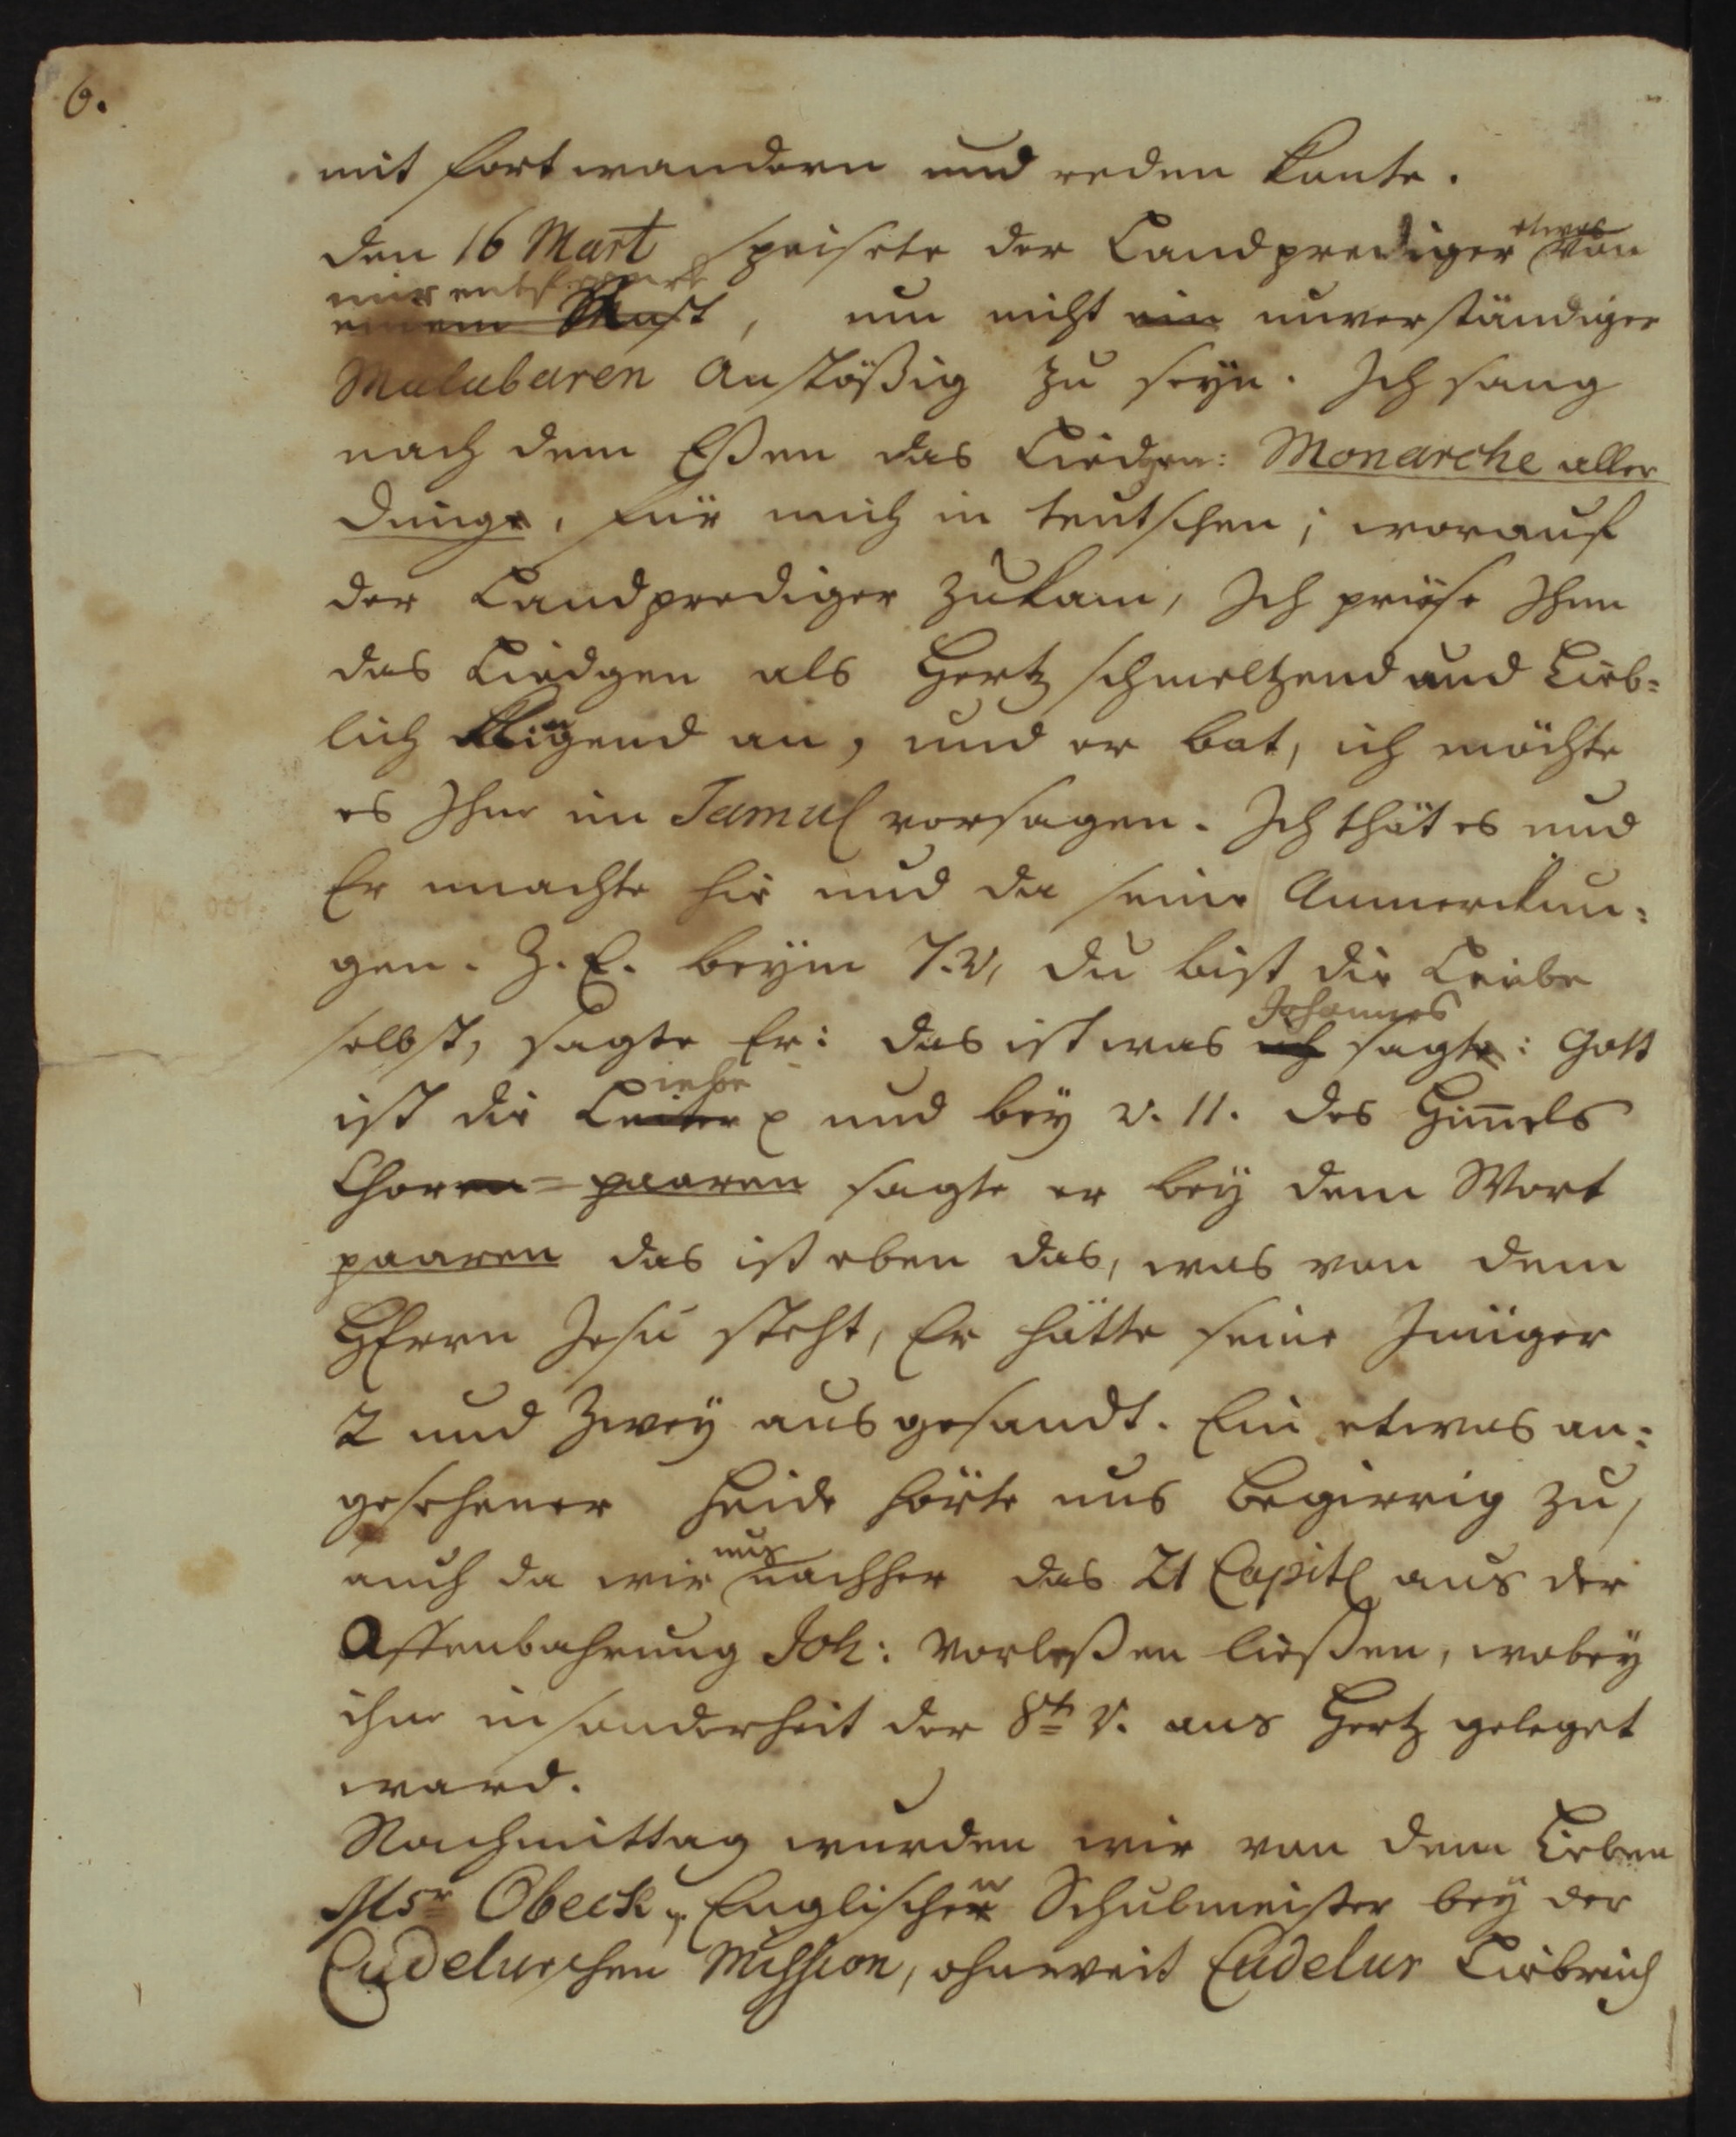 6.
mit fortwandern und reden konte.
den 16 Mart speisete der Landprediger etwas von
mir entfernt
einem Mast, um nicht ein unverständiger
Malabaren Anstößig zu seyn. Ich sang
nach dem Eßen das Liedgen: Monarche aller
Dinge, für mich in teutschen; worauf
der Landprediger zukam, Ich priese Ihm
das Liedgen als Hertz schmeltzend und Lieb-
lich klingend an, und er bat, ich möchte
es Ihm im Tamul vorsagen. Ich thät es und
Er machte hie und da seine Anmerckun-
gen. Z. E. beym 7. v, du bist die Liebe
selbst, sagte Er: das ist was ich Johannes sagte: Gott
ist die Leiter iebe und bey v. 11. des Him̅els
Choren-paaren sagte er bey dem Wort
paaren das ist eben das, was von dem
HErrn Jesu steht, Er hätte seine Jünger
2 und Zwey ausgesandt. Ein etwas an-
gesehener Heide hörte uns begierig zu,
auch da wir uns nachher das 21 Capitl aus der
Offenbahrung Joh: Vorleßen ließen, wobey
ihm insonderheit der 8te V. ans Hertz geleget
ward.
Nachmittag wurden wir von dem Lieben
Msr Obeck, Englischen Schulmeister bey der
Cudelurschen Mission, ohnweit Cudelur Liebreich